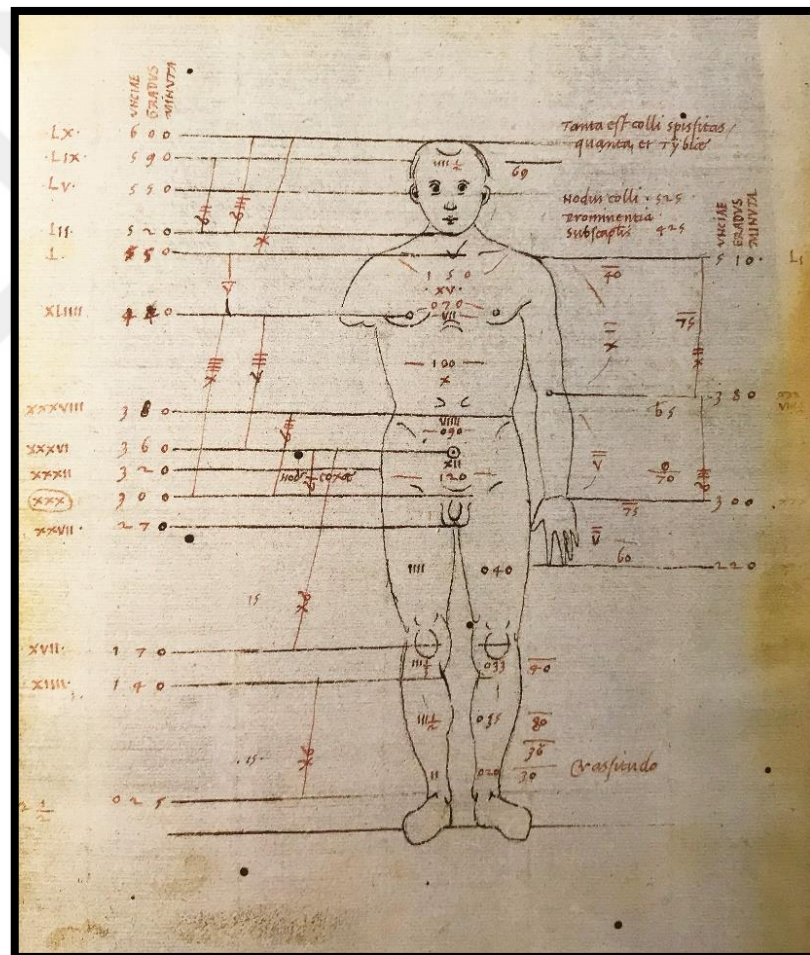 VNCIAE
GRADVS
MINVTA
·LX· 6 0 0
·LIX· 5 9 0
LV· 5 5 0
LII· 5 2 0
L· 5 0
XLIIII 4 4 0
XXXVIII 3 8 0
XXXVI 3 6 0
XXXII 3 2 0
XXX 3 0 0
XXVII· 2 7 0
XVII· 1 7 0
XIIII· 1 4 0
½ 0 2 5
Tanta est colli spissitas
quanta et Tybiæ
69
Nodus colli · 525
prominentia
subscapulis 425
VNCIAE
GRADVS
MINVTA
5 1 0 ·
3 8 0
3 0 0
2 2 0
IIII ½
1 5 0
·XV·
070
VII
100
X
VIIII
090
XII
120
IIII
040
III ½
033
III ½
035
II
020
40
75
X
65
V
70
75
V
60
15
·15·
40
80
36
30
Crassitudo